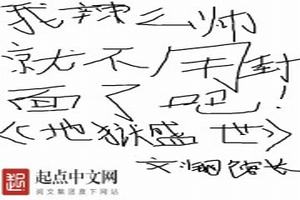 我辣么帅
就不用封
面了吧！
《地狱盛世》
文/洞馆长
起点中文网
阅文集团旗下网站